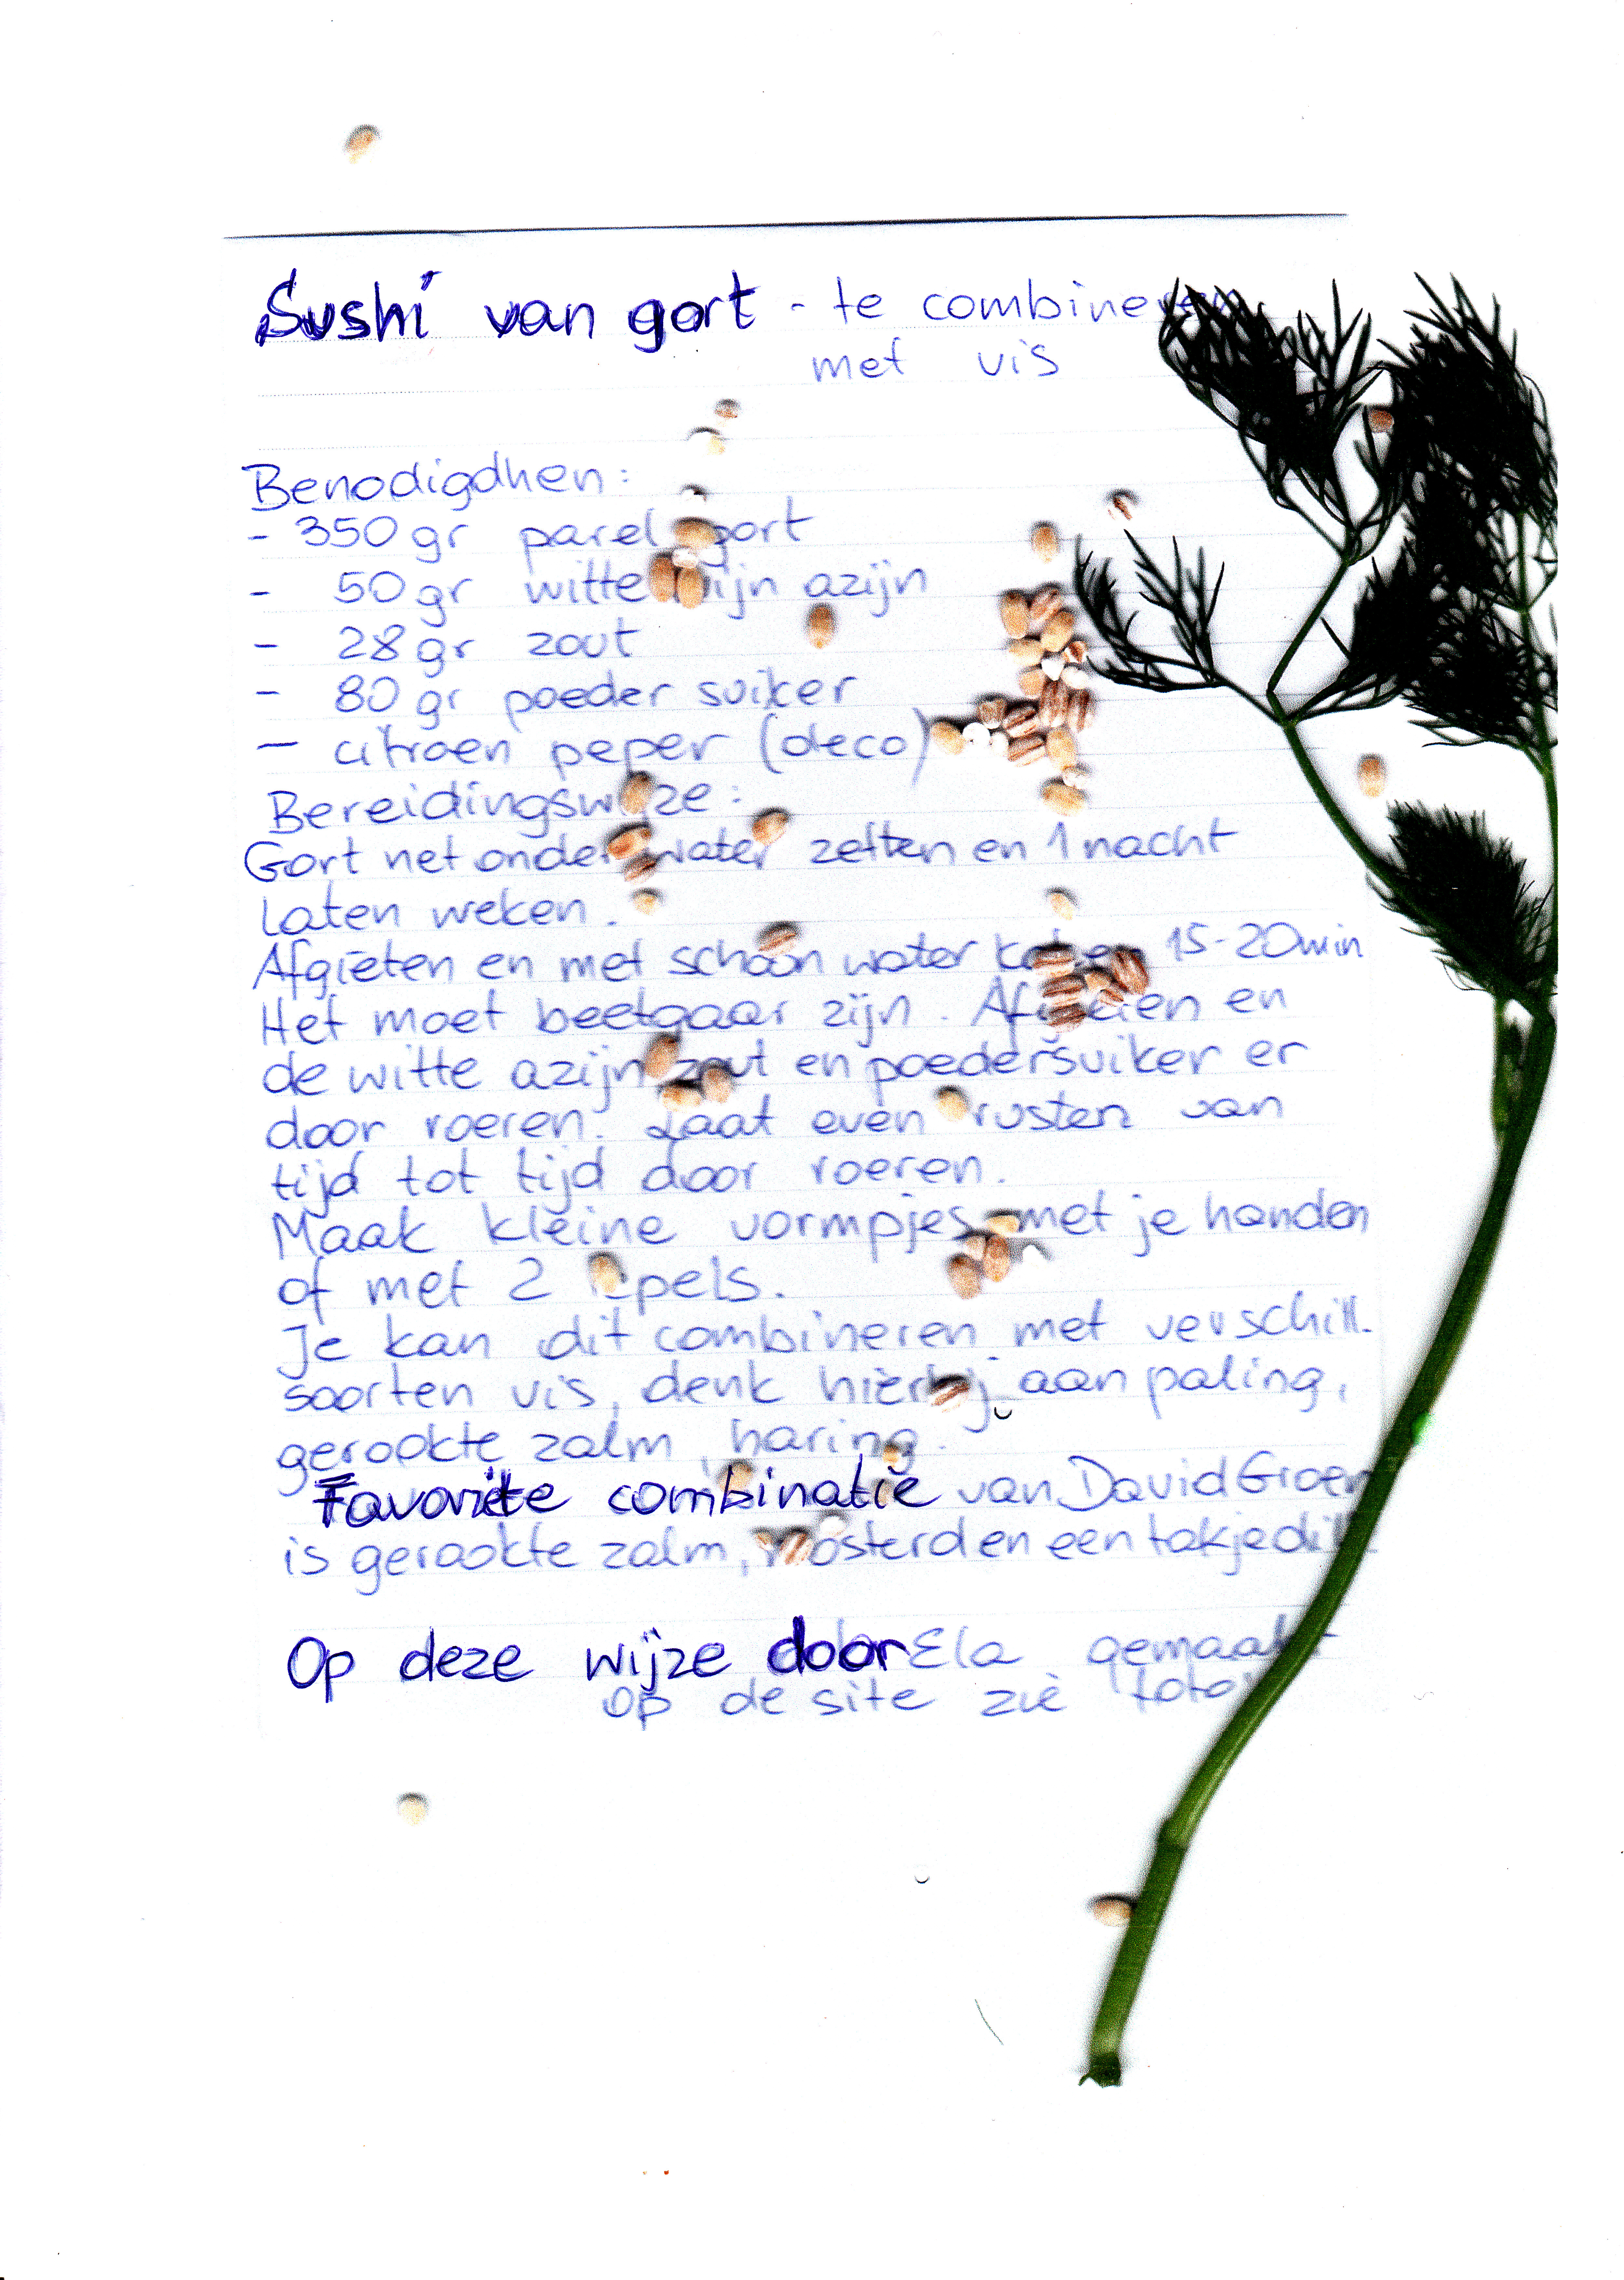 Sushi van gort - te combineren
met vis
Benodigdhen:
- 350 gr parel gort
- 50 gr witte wijn azijn
- 28 gr zout
- 80 gr poeder suiker
- citroen peper (deco)
Bereidingswijze:
Gort net onder water zetten en 1 nacht
laten weken.
Afgieten en met schoon water koken 15-20min
Het moet beetgaar zijn. Afgieten en
de witte azijn zout en poedersuiker er
door roeren. Laat even rusten van
tijd tot tijd door roeren.
Maak kleine vormpjes met je handen
of met 2 lepels.
Je kan dit combineren met verschill.
soorten vis, denk hierbij aan paling,
gerookte zalm, haring.
Favoriete combinatie van David Groen
is gerookte zalm, mosterd en een takje dille
Op deze wijze door Ela gemaakt
op de site zie foto's